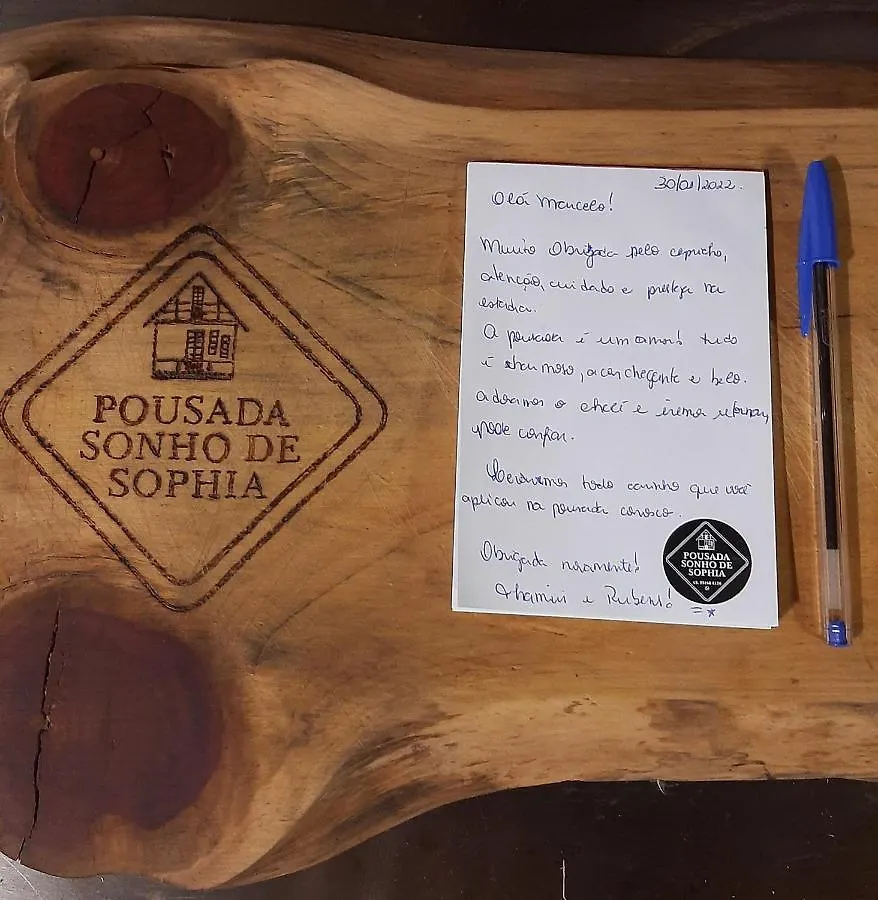 POUSADA
SONHO DE
SOPHIA
30/01/2022.
Olá Marcelo!
Muito Obrigada pelo capricho,
atenção, cuidado e presteza na
estadia.
A pousada é um amor! tudo
é charmoso, aconchegante e belo.
adoramos o chalé e iremos retornar,
pode confiar.
todo carinho que você
aplicou na pousada conosco.
Obrigada novamente!
e Rubens! =*
POUSADA
SONHO DE
SOPHIA